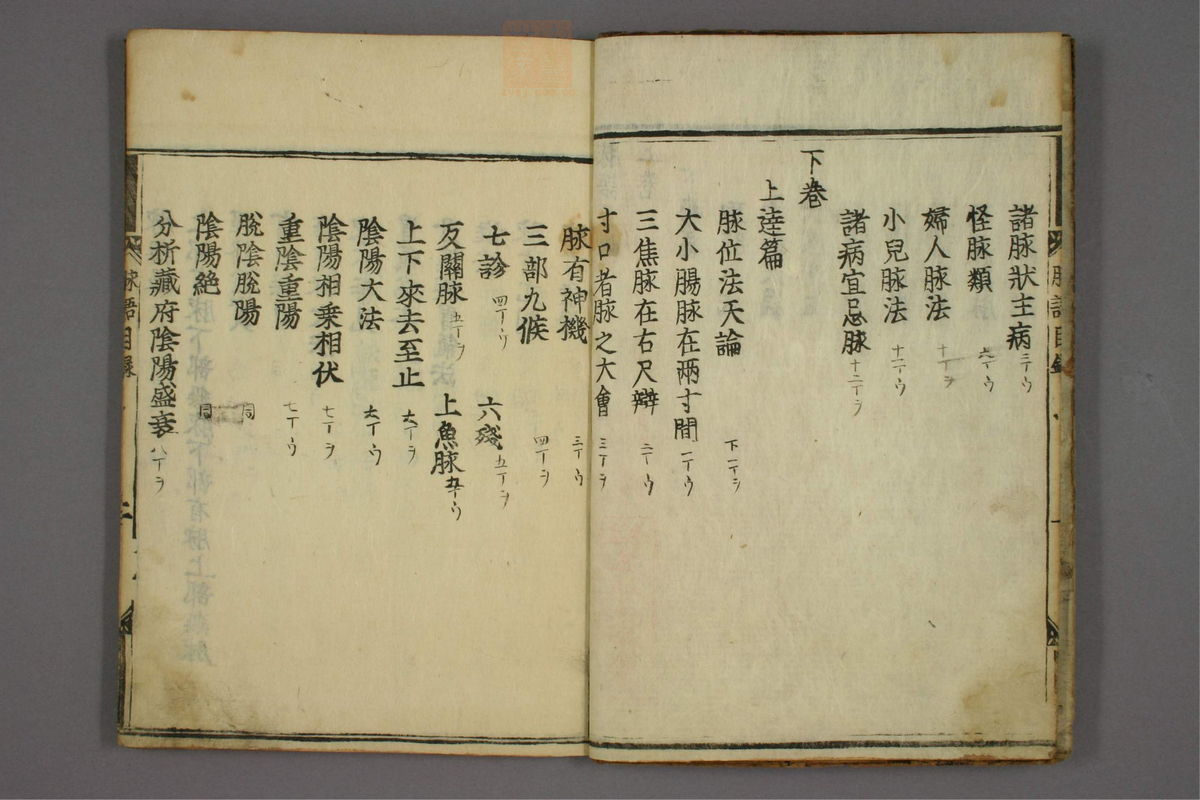 諸脉狀主病 三丁ウ
怪脉類 九丁ウ
婦人脉法 十一丁ヲ
小兒脉法 十一丁ウ
諸病宜忌脉 十二丁ヲ
下卷
上達篇
脉位法天論 下一丁ヲ
大小腸脉在兩寸間 一丁ウ
三焦脉在右尺辯 二丁ウ
寸口者脉之大會 三丁ヲ
脉有神機 三丁ウ
三部九候 四丁ヲ
七診 四丁ウ 六殘 五丁ヲ
反關脉 五丁ヲ 上魚脉 五丁ウ
上下來去至止 六丁ヲ
陰陽大法 六丁ウ
陰陽相乗相伏 七丁ヲ
重陰重陽 七丁ウ
脫陰脫陽 同
陰陽絕 同
分析藏府陰陽盛衰 八丁ヲ
脉語目錄